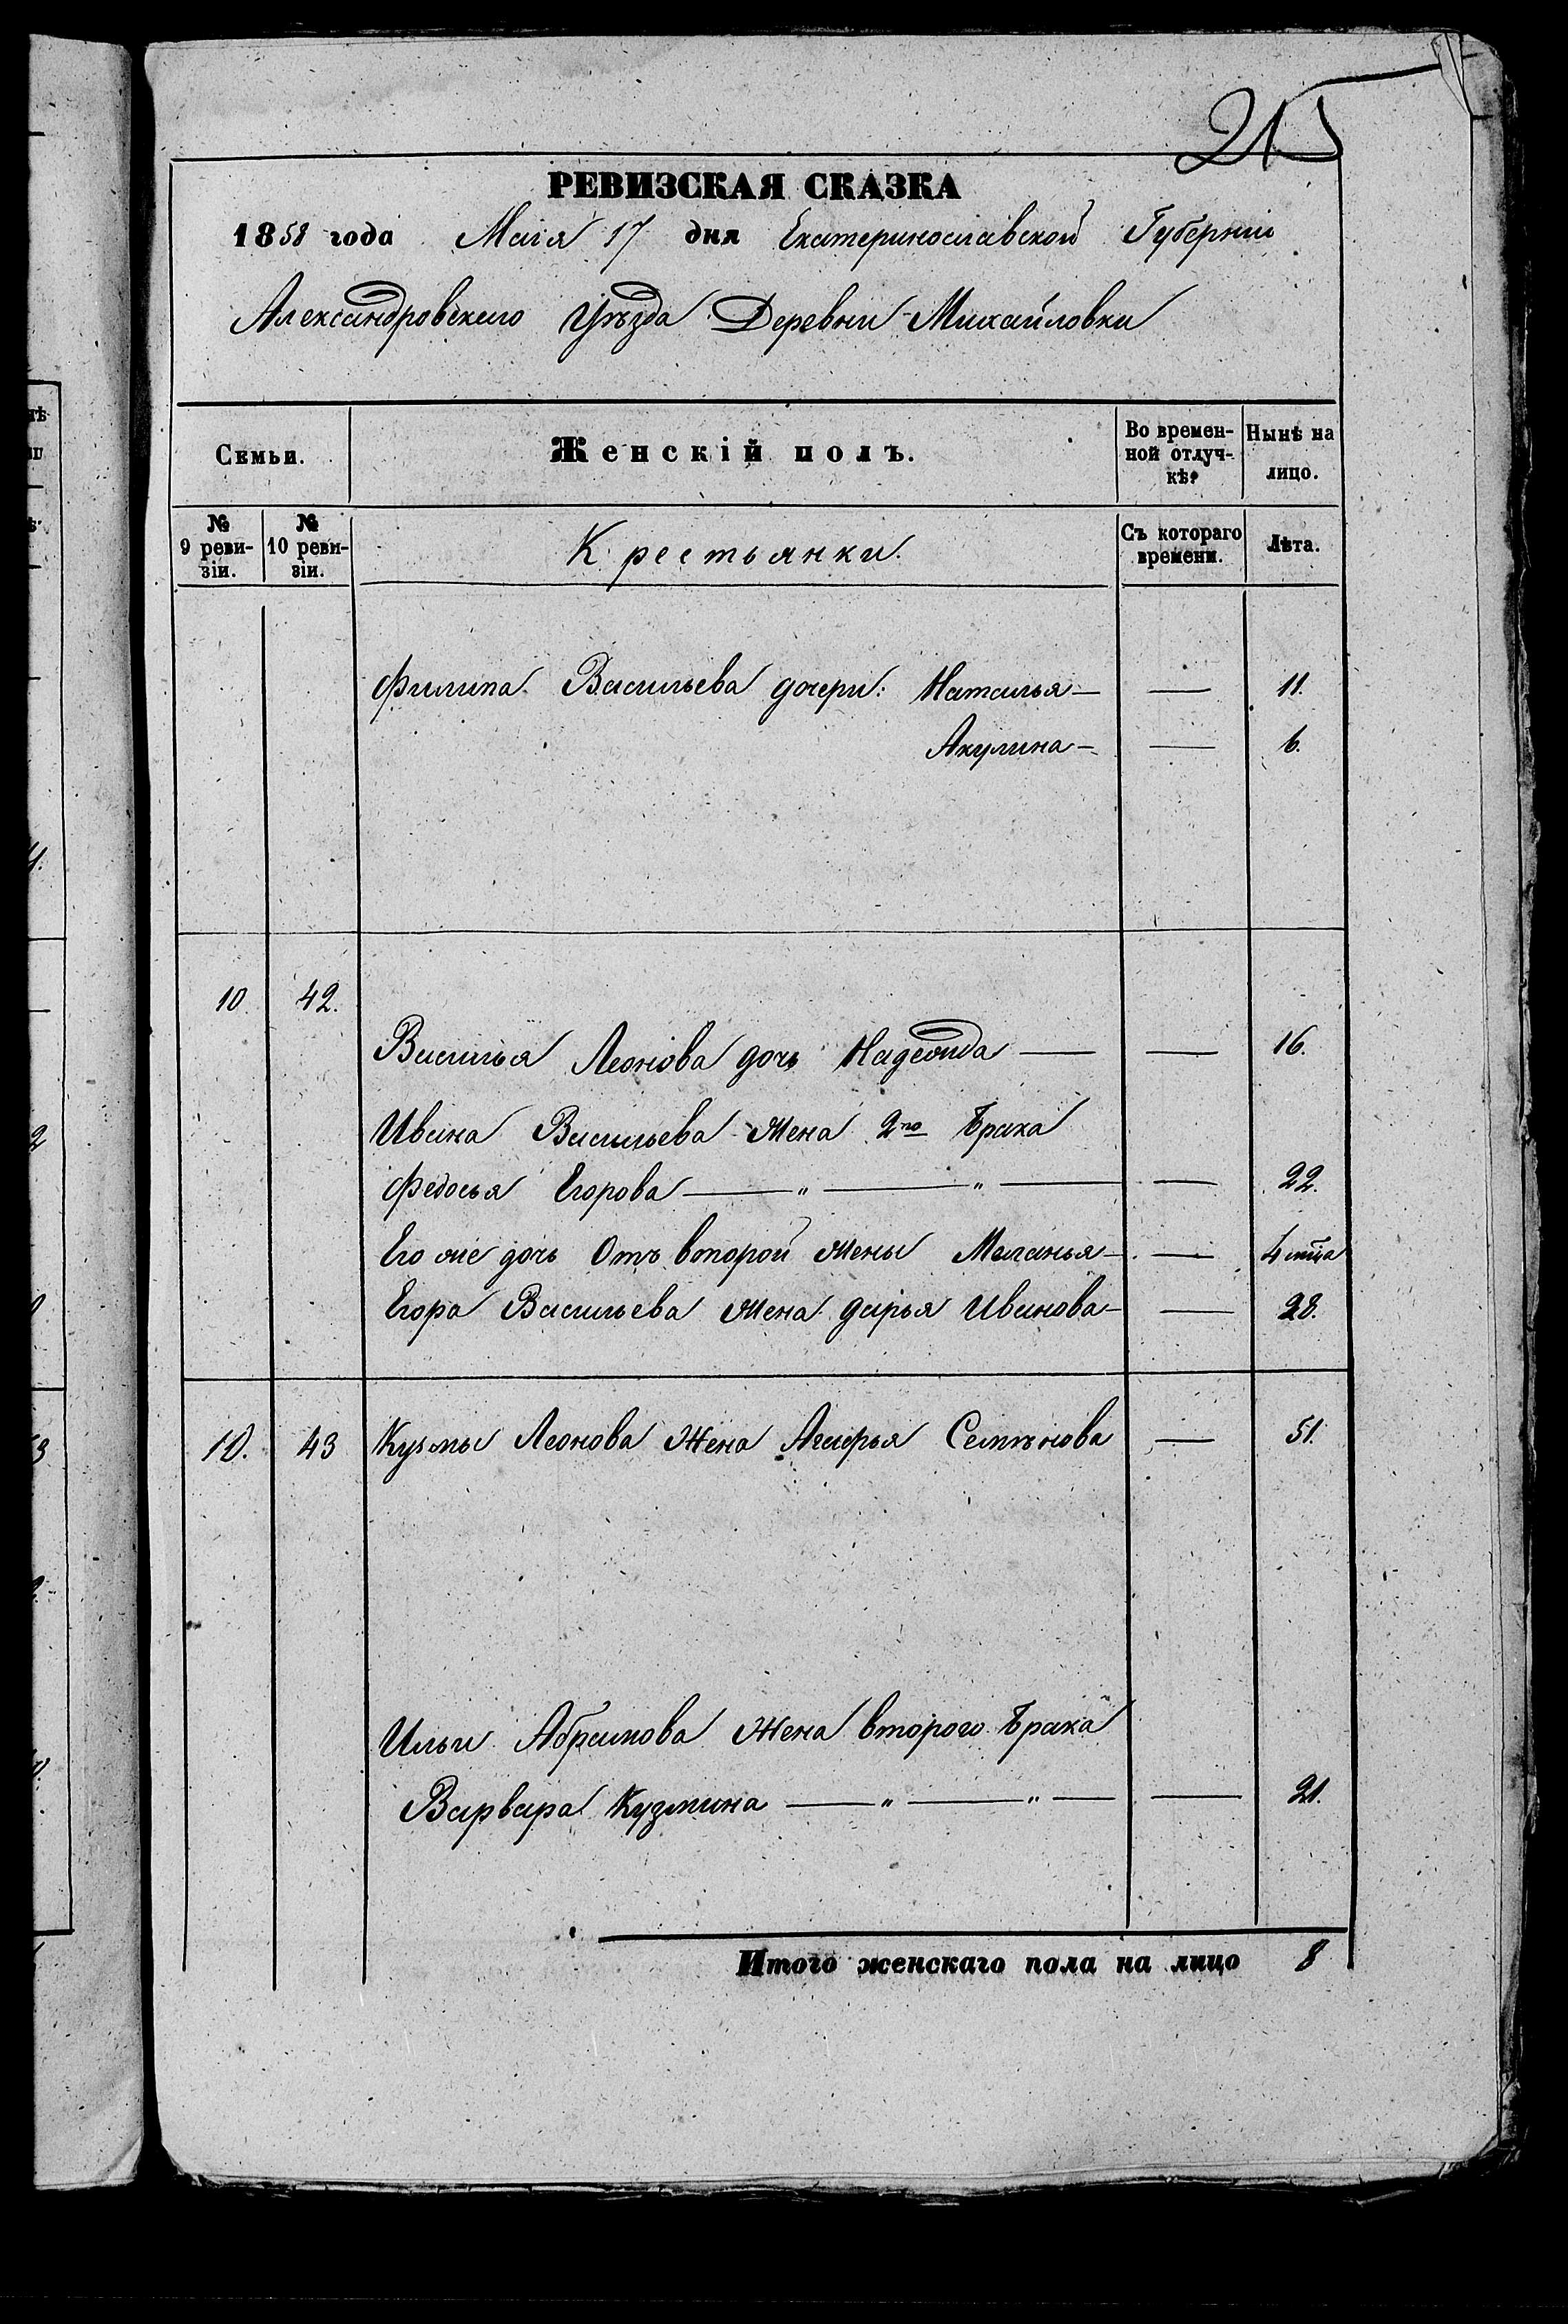 215
РЕВИЗСКАЯ СКАЗКА
1858 года Маія 17 дня Екатеринославской Губерніи
Александровскаго Уѣзда Деревни Михайловки
Семьи. Женскій полъ. Во времен-ной отлуч-кѣ. Нынѣ на лицо.
№ 9 реви-зіи. № 10 реви-зіи. Крестьянки. Съ котораго времени. Лѣта.
Филипа Васильева дочери: Наталья — — 11.
Акулина — — 6.
10. 42.
Василья Леонова дочь Надежда — — 16.
Ивана Васильева Жена 2го брака
Федосья Егорова — „ — „ — — 22.
Его же дочь Отъ второй жены Меланья — — 4 мца
Егора Васильева жена дарья Иванова — — 28.
10. 43 Кузмы Леонова Жена Агафья Семѣнова — 51.
Ильи Абрамова Жена второго брака
Варвара Кузмина — „ — „ — — 21.
Итого женскаго пола на лицо 8